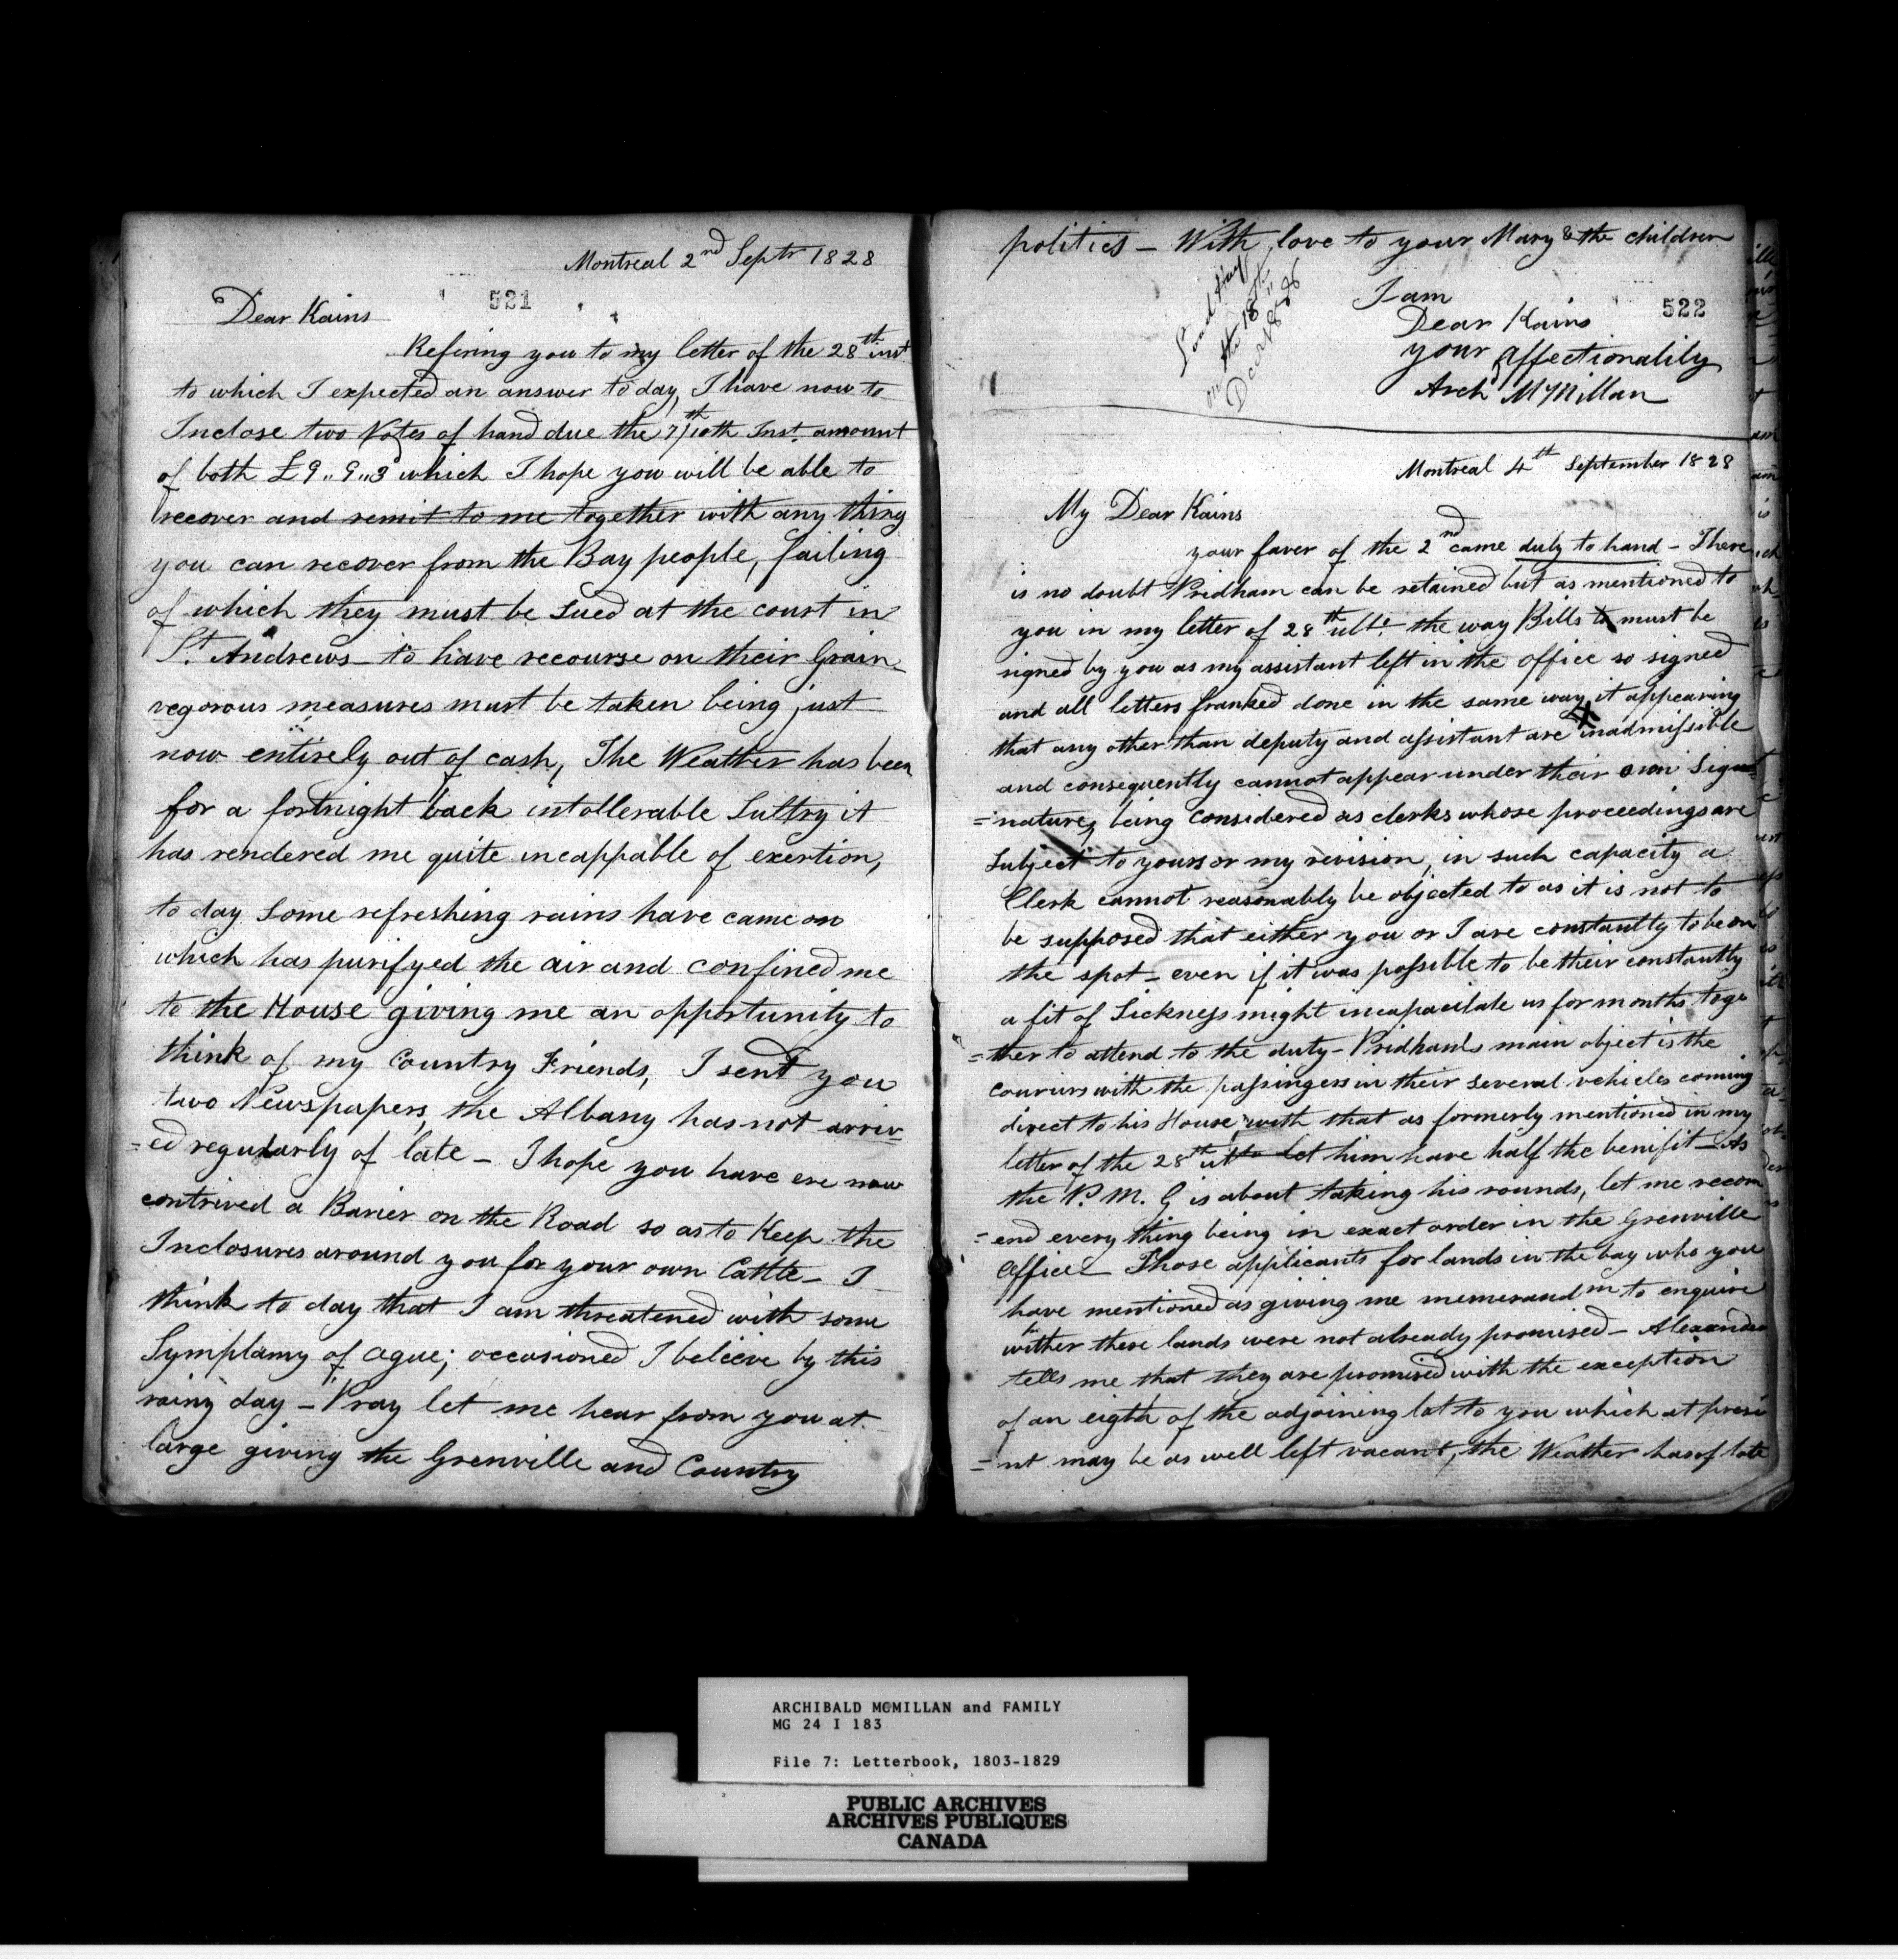 Montreal 2nd Septr 1828
521
Dear Kains
Refering you to my letter of the 28th inst
to which I expected an answer to day, I have now to
Inclose two Notes of hand due the 7/10th Inst. amount
of both £9,,9,,3d which I hope you will be able to
recover and remit to me together with any thing
you can recover from the Bay people, failing
of which they must be sued at the court in
St. Andrews – to have recourse on their Grain
regorous measures must be taken being just
now entirely out of cash, The Weather has been
for a fortnight back intollerable Sultry it
has rendered me quite incappable of exertion,
to day some refreshing rains have came on
which has purifyed the air and confined me
to the House giving me an opportunity to
think of my Country Friends, I sent you
two Newspapers, the Albany has not arriv
=ed regularly of late – I hope you have ere now
contrived a Barier on the Road so as to Keep the
Inclosures around you for your own Cattle – I
think to day that I am threatened with some
Symptamy of ague; occasioned I beleive by this
rainy day – Pray let me hear from you at
large giving the Grenville and Country
politics – With love to your Mary & the children
I am
522
Dear Kains
your affectionatily
Archd McMillan
on the 18th
Decr 1828
Montreal 4th September 1828
My Dear Kains
your faver of the 2nd came duly to hand – There
is no doubt Pridham can be retained but as mentioned to
you in my letter of 28th ulto. the way Bills must be
signed by you as my assistant left in the office so signed
and all letters franked done in the same way it appearing
that any other than deputy and assistant are inadmissible
and consequently cannot appear under their own Sig
=nature, being considered as clerks whose proceedings are
Subject to yours or my revision, in such capacity a
Clerk cannot reasonably be objected to as it is not to
be supposed that either you or I are constantly to be on
the spot – even if it was possible to be their constantly
a fit of Sickness might incapacitate us for months toge
=ther to attend to the duty – Pridham's main object is the
couriers with the passingers in their several vehicles coming
direct to his House, with that as formerly mentioned in my
letter of the 28th ulto let him have half the benifit – As
the P. M. G is about taking his rounds, let me recom
=end every thing being in exact order in the Grenville
Office – Those applicants for lands in the bay who you
have mentioned as giving me memerandm to enquire
wither these lands were not already promised – Alexander
tells me that they are promised with the exception
of an eigth of the adjoining lot to you which at prese
=nt may be as well left vacant, the Weather has of late
ARCHIBALD MCMILLAN and FAMILY
MG 24 I 183
File 7: Letterbook, 1803-1829
PUBLIC ARCHIVES
ARCHIVES PUBLIQUES
CANADA